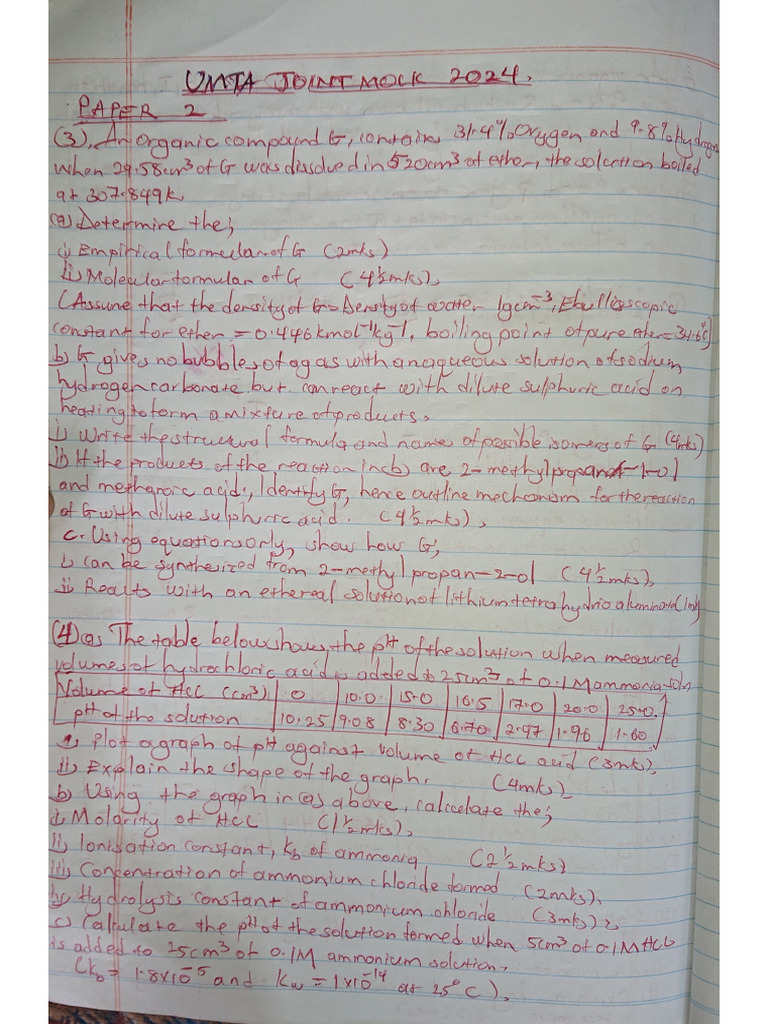 UMTA JOINT MOCK 2024.
PAPER 2
(3). An organic compound G, contains 31.4% Oxygen and 9.8% Hydrogen
When 29.58cm³ of G was dissolved in 520cm³ of ether, the solution boiled
at 307.849k.
(a) Determine the;
i) Empirical formular of G (2mks)
ii) Molecular formular of G (4½mks),
(Assume that the density of G = Density of water 1gcm⁻³, Ebullioscopic
constant for ether = 0.446kmol⁻¹kg⁻¹, boiling point of pure ether = 34.6°C)
b) G gives no bubbles of a gas with an aqueous solution of sodium
hydrogen carbonate but can react with dilute sulphuric acid on
heating to form a mixture of products.
i) Write the structural formula and names of possible isomers of G (4mks)
ii) If the products of the reaction in (b) are 2-methylpropan-1-ol
and methanoic acid, Identify G, hence outline mechanism for the reaction
of G with dilute sulphuric acid. (4½mks),
c. Using equations only, show how G;
i, can be synthesized from 2-methylpropan-2-ol (4½mks),
ii, Reacts with an ethereal solution of lithium tetrahydrido aluminate (1mk)
(4) (a) The table below shows, the pH of the solution when measured
volumes of hydrochloric acid is added to 25cm³ of 0.1M ammonia soln
Volume of HCl (cm³) | 0 | 10.0 | 15.0 | 16.5 | 17.0 | 20.0 | 25.0
pH of the solution | 10.25 | 9.08 | 8.30 | 6.70 | 2.97 | 1.96 | 1.60
i, Plot a graph of pH against volume of HCl acid (3mks),
ii) Explain the shape of the graph. (4mks)
b) Using the graph in (a) above, calculate the;
i, Molarity of HCl (1½mks),
ii) Ionisation constant, kb of ammonia (2½mks)
iii) Concentration of ammonium chloride formed (2mks),
iv) Hydrolysis constant of ammonium chloride (3mks),
c) Calculate the pH of the solution formed when 5cm³ of 0.1M HCl
is added to 25cm³ of 0.1M ammonium solution.
(kb = 1.8x10⁻⁵ and kw = 1x10⁻¹⁴ at 25°C),